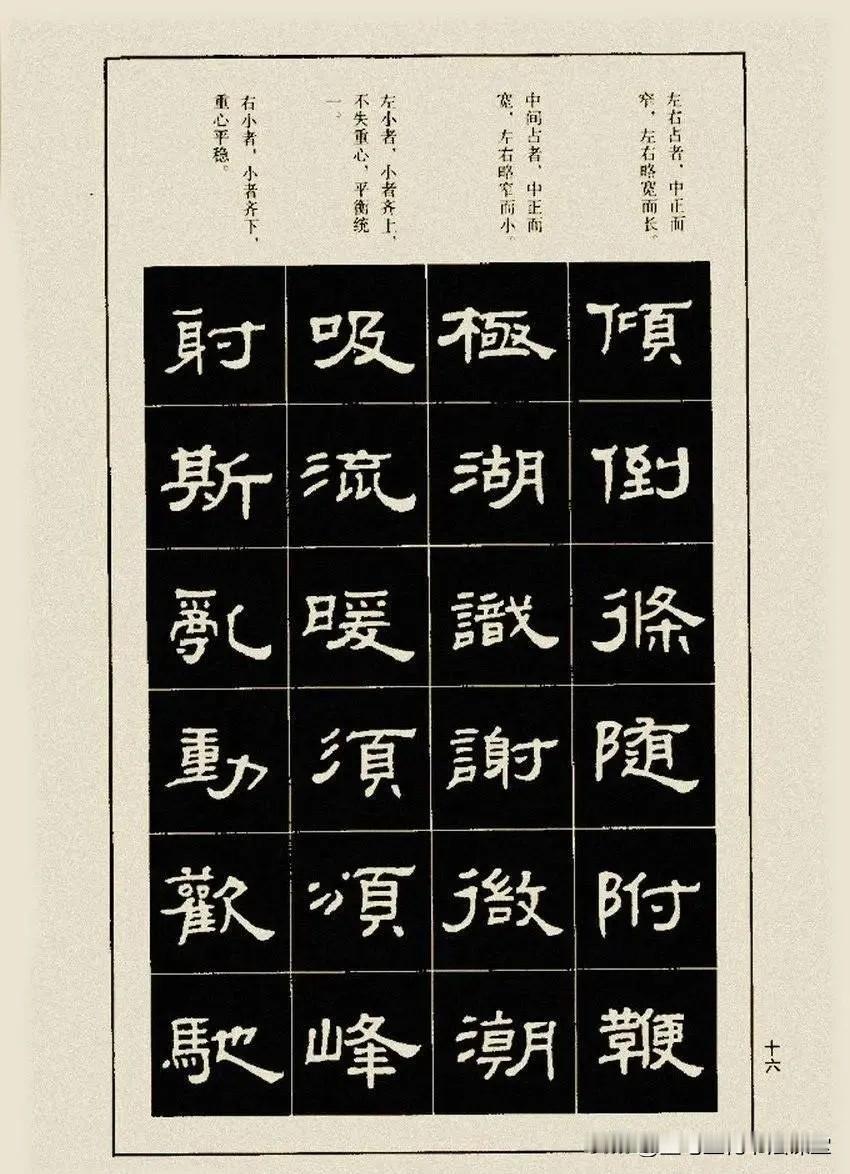 左右占者，中正而
窄，左右略宽而长。
中间占者，中正而
宽，左右略窄而小。
左小者，小者齐上，
不失重心，平衡统
一。
右小者，小者齐下，
重心平稳。
傾倒條随附鞭
極湖識謝微潮
吸流暖須頌峰
射斯亂動歡馳
十六